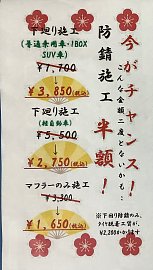 今がチャンス!
こんな金額二度とないかも…
防錆施工
半額!
下廻り施工
(普通乗用車・1BOX
SUV車)
¥7,700
¥3,850(税込)
下廻り施工
(軽自動車)
¥5,500
¥2,750(税込)
マフラーのみ施工
¥3,300
¥1,650(税込)
※下廻り防錆のみ、
タイヤ脱着工賃が、
¥2,200かかります